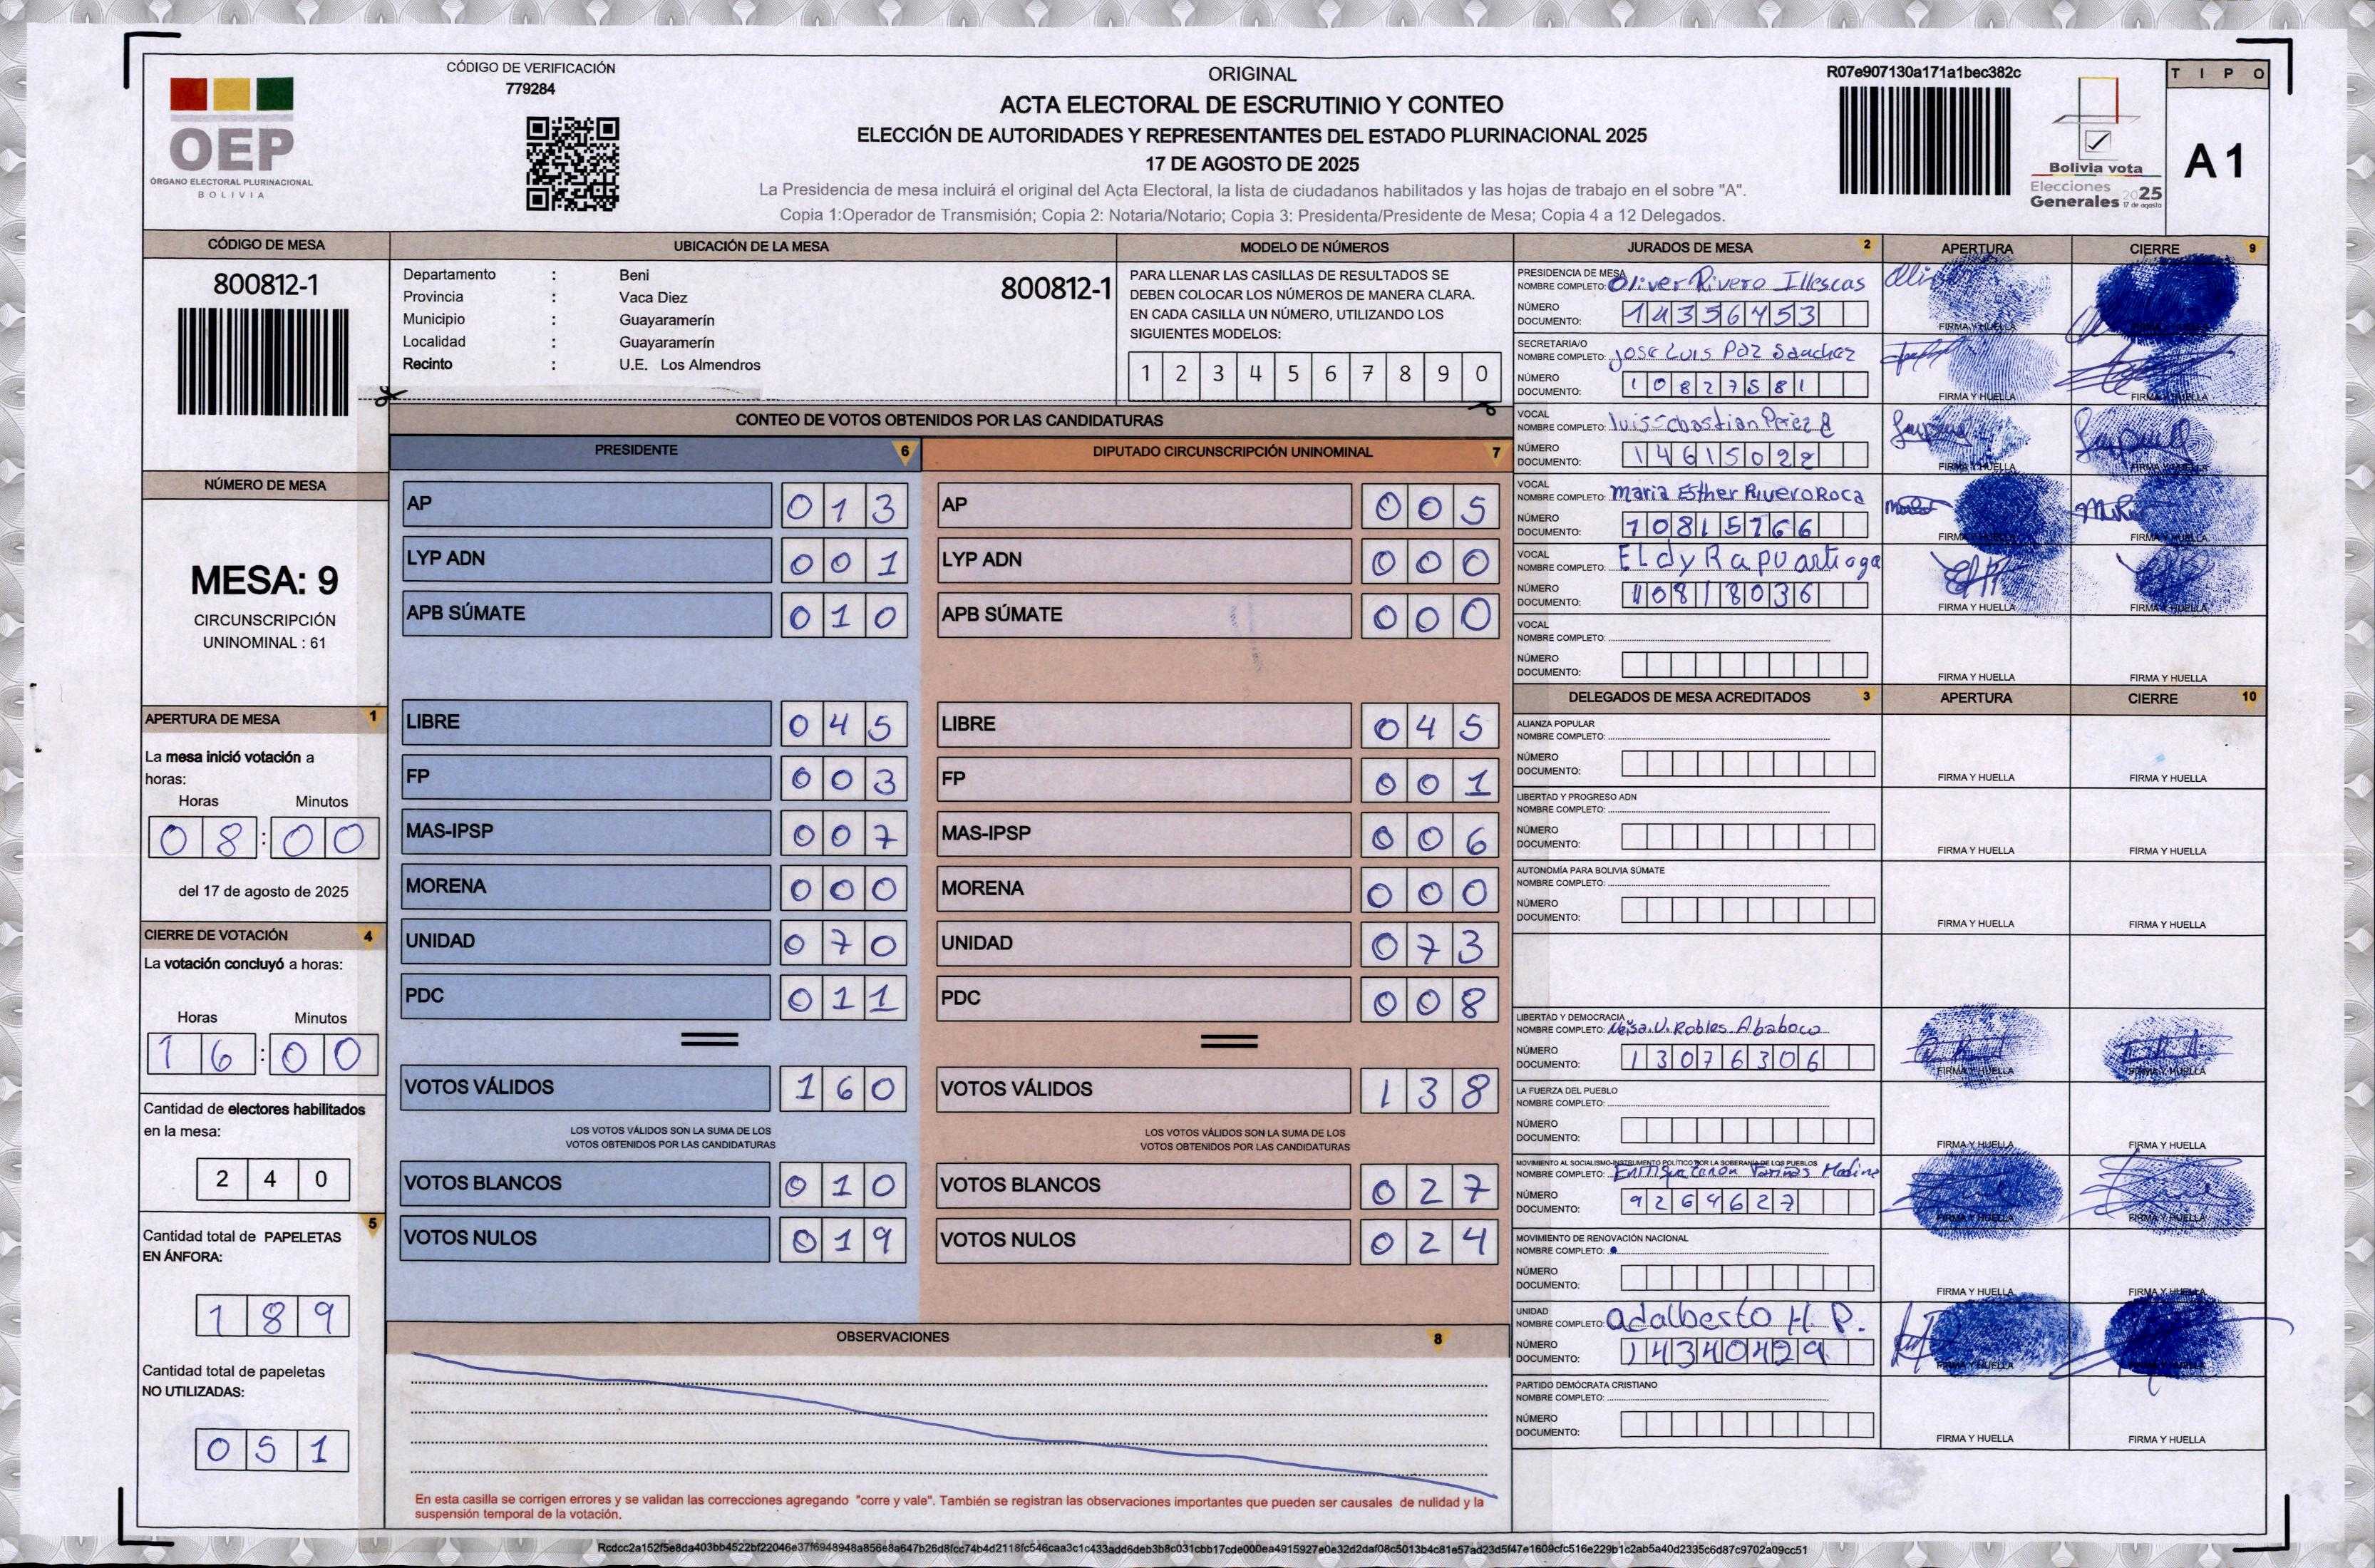 CÓDIGO DE VERIFICACIÓN
779284
OEP
ÓRGANO ELECTORAL PLURINACIONAL
BOLIVIA
ORIGINAL
ACTA ELECTORAL DE ESCRUTINIO Y CONTEO
ELECCIÓN DE AUTORIDADES Y REPRESENTANTES DEL ESTADO PLURINACIONAL 2025
17 DE AGOSTO DE 2025
La Presidencia de mesa incluirá el original del Acta Electoral, la lista de ciudadanos habilitados y las hojas de trabajo en el sobre "A".
Copia 1:Operador de Transmisión; Copia 2: Notaria/Notario; Copia 3: Presidenta/Presidente de Mesa; Copia 4 a 12 Delegados.
R07e907130a171a1bec382c
Bolivia vota
Elecciones 2025
Generales 17 de agosto
TIPO
A 1
CÓDIGO DE MESA
800812-1
UBICACIÓN DE LA MESA
Departamento : Beni
Provincia : Vaca Diez
Municipio : Guayaramerín
Localidad : Guayaramerín
Recinto : U.E. Los Almendros
800812-1
MODELO DE NÚMEROS
PARA LLENAR LAS CASILLAS DE RESULTADOS SE
DEBEN COLOCAR LOS NÚMEROS DE MANERA CLARA.
EN CADA CASILLA UN NÚMERO, UTILIZANDO LOS
SIGUIENTES MODELOS:
1 2 3 4 5 6 7 8 9 0
NÚMERO DE MESA
MESA: 9
CIRCUNSCRIPCIÓN
UNINOMINAL : 61
APERTURA DE MESA 1
La mesa inició votación a
horas:
Horas Minutos
0 8 : 0 0
del 17 de agosto de 2025
CIERRE DE VOTACIÓN 4
La votación concluyó a horas:
Horas Minutos
1 6 : 0 0
Cantidad de electores habilitados
en la mesa:
2 4 0
5
Cantidad total de PAPELETAS
EN ÁNFORA:
1 8 9
Cantidad total de papeletas
NO UTILIZADAS:
0 5 1
CONTEO DE VOTOS OBTENIDOS POR LAS CANDIDATURAS
PRESIDENTE 6
AP 0 1 3
LYP ADN 0 0 1
APB SÚMATE 0 1 0
LIBRE 0 4 5
FP 0 0 3
MAS-IPSP 0 0 7
MORENA 0 0 0
UNIDAD 0 7 0
PDC 0 1 1
VOTOS VÁLIDOS 1 6 0
LOS VOTOS VÁLIDOS SON LA SUMA DE LOS
VOTOS OBTENIDOS POR LAS CANDIDATURAS
VOTOS BLANCOS 0 1 0
VOTOS NULOS 0 1 9
DIPUTADO CIRCUNSCRIPCIÓN UNINOMINAL 7
AP 0 0 5
LYP ADN 0 0 0
APB SÚMATE 0 0 0
LIBRE 0 4 5
FP 0 0 1
MAS-IPSP 0 0 6
MORENA 0 0 0
UNIDAD 0 7 3
PDC 0 0 8
VOTOS VÁLIDOS 1 3 8
LOS VOTOS VÁLIDOS SON LA SUMA DE LOS
VOTOS OBTENIDOS POR LAS CANDIDATURAS
VOTOS BLANCOS 0 2 7
VOTOS NULOS 0 2 4
OBSERVACIONES 8
En esta casilla se corrigen errores y se validan las correcciones agregando "corre y vale". También se registran las observaciones importantes que pueden ser causales de nulidad y la
suspensión temporal de la votación.
JURADOS DE MESA 2 APERTURA CIERRE 9
PRESIDENCIA DE MESA
NOMBRE COMPLETO: Oliver Rivero Illescas
NÚMERO
DOCUMENTO: 14356453
FIRMA Y HUELLA
SECRETARIA/O
NOMBRE COMPLETO: Jose Luis Paz Sanchez
NÚMERO
DOCUMENTO: 10827581
FIRMA Y HUELLA FIRMA Y HUELLA
VOCAL
NOMBRE COMPLETO: luis Sebastian Perez
NÚMERO
DOCUMENTO: 14615022
FIRMA Y HUELLA FIRMA Y HUELLA
VOCAL
NOMBRE COMPLETO: Maria Esther Rivero Roca
NÚMERO
DOCUMENTO: 10815766
FIRMA Y HUELLA FIRMA Y HUELLA
VOCAL
NOMBRE COMPLETO: Eldy Rapu artiaga
NÚMERO
DOCUMENTO: 10818036
FIRMA Y HUELLA FIRMA Y HUELLA
VOCAL
NOMBRE COMPLETO:
NÚMERO
DOCUMENTO:
FIRMA Y HUELLA FIRMA Y HUELLA
DELEGADOS DE MESA ACREDITADOS 3 APERTURA CIERRE 10
ALIANZA POPULAR
NOMBRE COMPLETO:
NÚMERO
DOCUMENTO:
FIRMA Y HUELLA FIRMA Y HUELLA
LIBERTAD Y PROGRESO ADN
NOMBRE COMPLETO:
NÚMERO
DOCUMENTO:
FIRMA Y HUELLA FIRMA Y HUELLA
AUTONOMÍA PARA BOLIVIA SÚMATE
NOMBRE COMPLETO:
NÚMERO
DOCUMENTO:
FIRMA Y HUELLA FIRMA Y HUELLA
LIBERTAD Y DEMOCRACIA
NOMBRE COMPLETO: Robles
NÚMERO
DOCUMENTO: 13076306
FIRMA Y HUELLA FIRMA Y HUELLA
LA FUERZA DEL PUEBLO
NOMBRE COMPLETO:
NÚMERO
DOCUMENTO:
FIRMA Y HUELLA FIRMA Y HUELLA
MOVIMIENTO AL SOCIALISMO-INSTRUMENTO POLÍTICO POR LA SOBERANÍA DE LOS PUEBLOS
NOMBRE COMPLETO:
NÚMERO
DOCUMENTO: 9264627
FIRMA Y HUELLA FIRMA Y HUELLA
MOVIMIENTO DE RENOVACIÓN NACIONAL
NOMBRE COMPLETO:
NÚMERO
DOCUMENTO:
FIRMA Y HUELLA FIRMA Y HUELLA
UNIDAD
NOMBRE COMPLETO: adalberto H. P.
NÚMERO
DOCUMENTO: 14340429
FIRMA Y HUELLA FIRMA Y HUELLA
PARTIDO DEMÓCRATA CRISTIANO
NOMBRE COMPLETO:
NÚMERO
DOCUMENTO:
FIRMA Y HUELLA FIRMA Y HUELLA